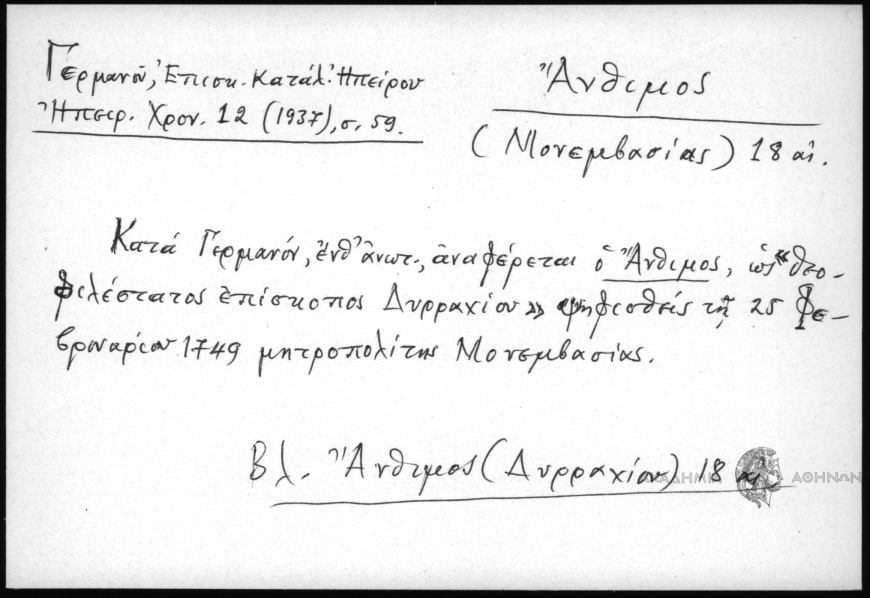 Γερμανοῦ, Ἐπισκ. Κατάλ. Ἠπείρου
Ἠπειρ. Χρον. 12 (1937), σ. 59.
Ἄνθιμος
(Μονεμβασίας) 18 αἰ.
Κατά Γερμανόν, ἔνθ' ἄνωτ., ἀναφέρεται ὁ Ἄνθιμος, ὡς «θεο-
φιλέστατος ἐπίσκοπος Δυρραχίου» ψηφισθείς τῇ 25 Φε-
βρουαρίου 1749 μητροπολίτης Μονεμβασίας.
Βλ. Ἄνθιμος (Δυρραχίου) 18 αἰ.
ΑΚΑΔΗΜΙΑ ΑΘΗΝΩΝ